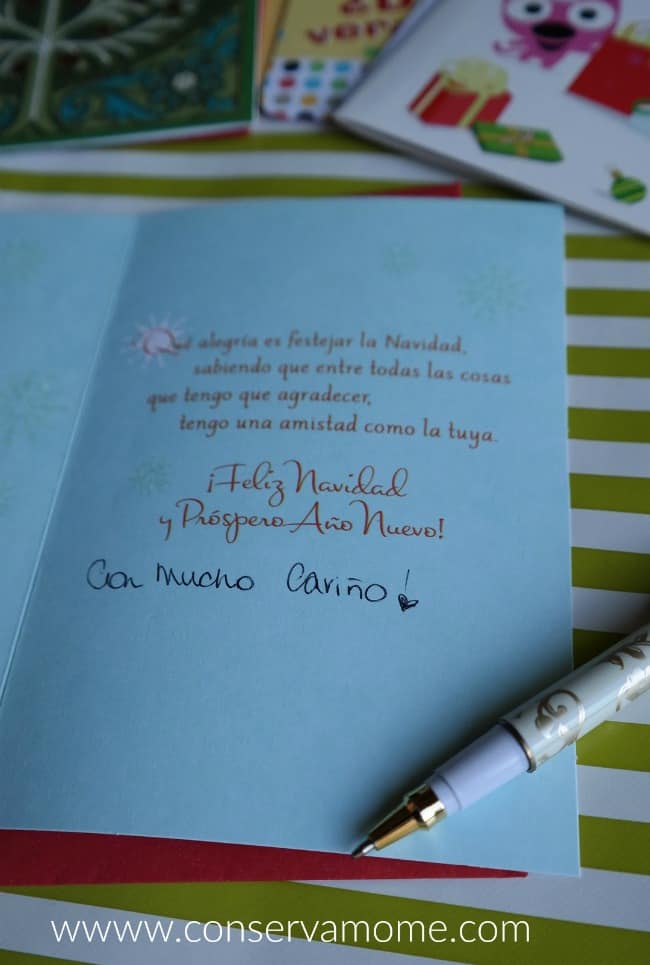 Qué alegría es festejar la Navidad,
sabiendo que entre todas las cosas
que tengo que agradecer,
tengo una amistad como la tuya.
¡Feliz Navidad
y Próspero Año Nuevo!
Con mucho Cariño!
www.conservamome.com